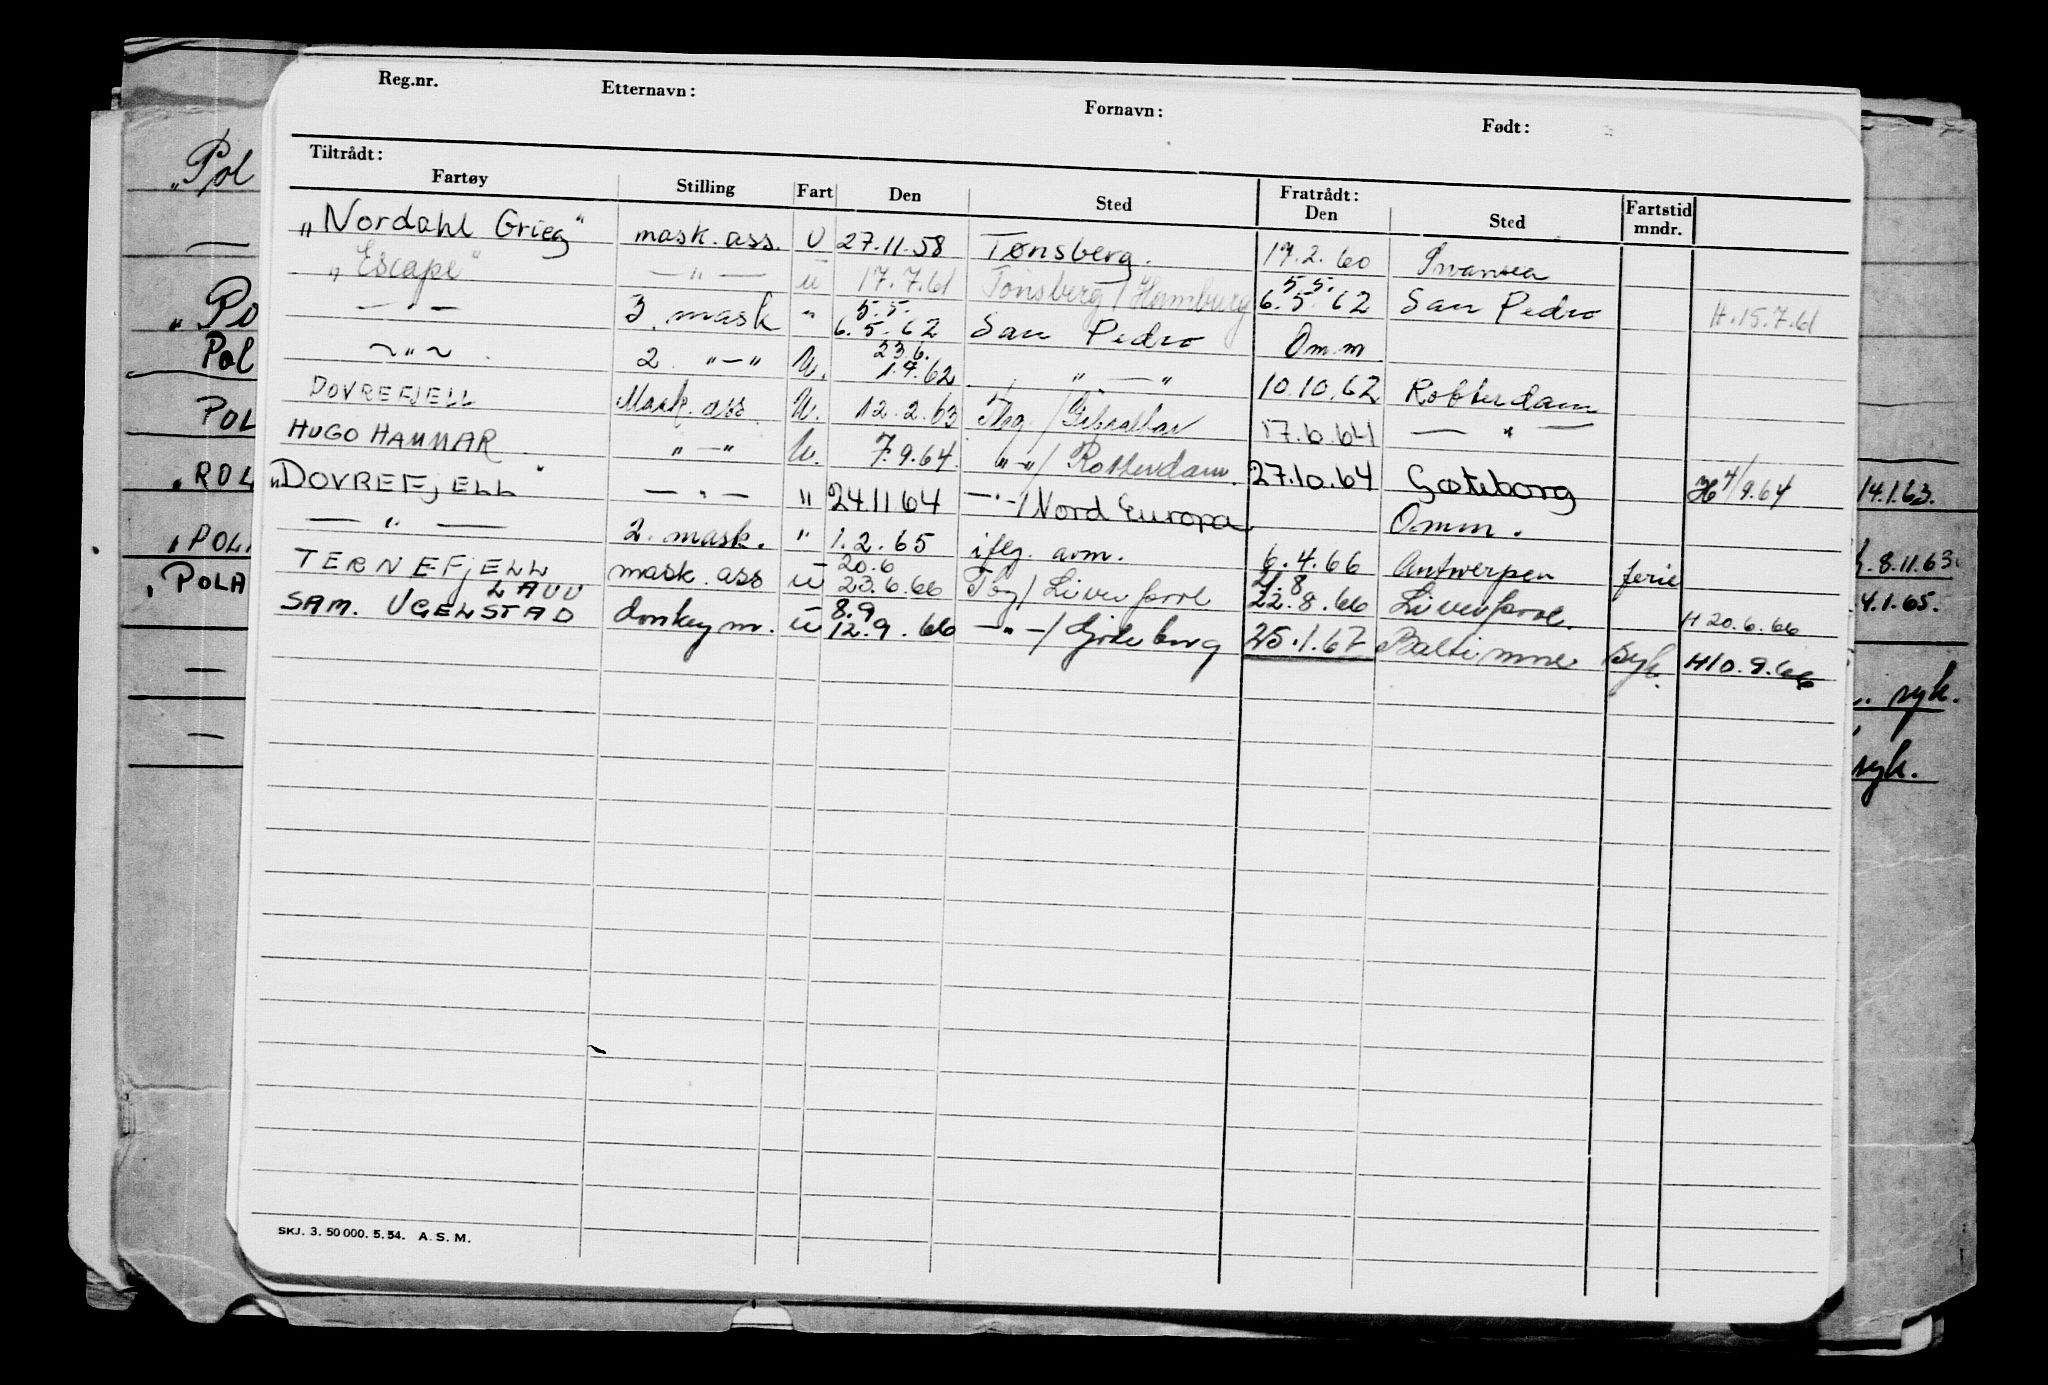 Reg.nr. Etternavn: Fornavn: Født:
Tiltrådt: Fratrådt:
Fartøy Stilling Fart Den Sted Den Sted Fartstid mndr.
„Nordahl Grieg" mask. ass. U 27.11.58 Tønsberg. 19.2.60 Swansea
„Escape" — " — u 17.7.61 Tønsberg / Hamburg 5.5. 6.5.62 San Pedro H.15.7.61
— " — 3. mask " 5.5. 6.5.62 San Pedro Omm
~ " ~ 2 " — " U. 23.6. 1.9.62 " — " 10.10.62 Rotterdam
DOVREFJELL Mask. ass U. 12.2.63 Tbg. / Gibraltar 17.6.64 — " —
HUGO HAMMAR " — " U. 7.9.64 " — " / Rotterdam. 27.10.64 Gøteborg H 4/9.64
„DOVREFjELL" — " — " 24.11 64 — " — / Nord Europa Omm.
— " — 2. mask. " 1.2.65 iflg. avm. 6.4.66 Antwerpen ferie
TERNEFjELL mask. ass u 20.6 23.6.66 Tbg / Liverpool 21.8 22.8.66 Liverpool. H 20.6.66
LAUU
SAM. UGELSTAD donkeym. u 8.9 12.9.66 — " — / Gøteborg 25.1.67 Baltimore Syk. H10.9.66
SKJ. 3. 50 000. 5. 54. A. S. M.
„Pol
—
„Po
Pol
POL
„ROL 14.1.63.
„POL. 8.11.63.
„POLA 4.1.65.
— syk.
— syk.